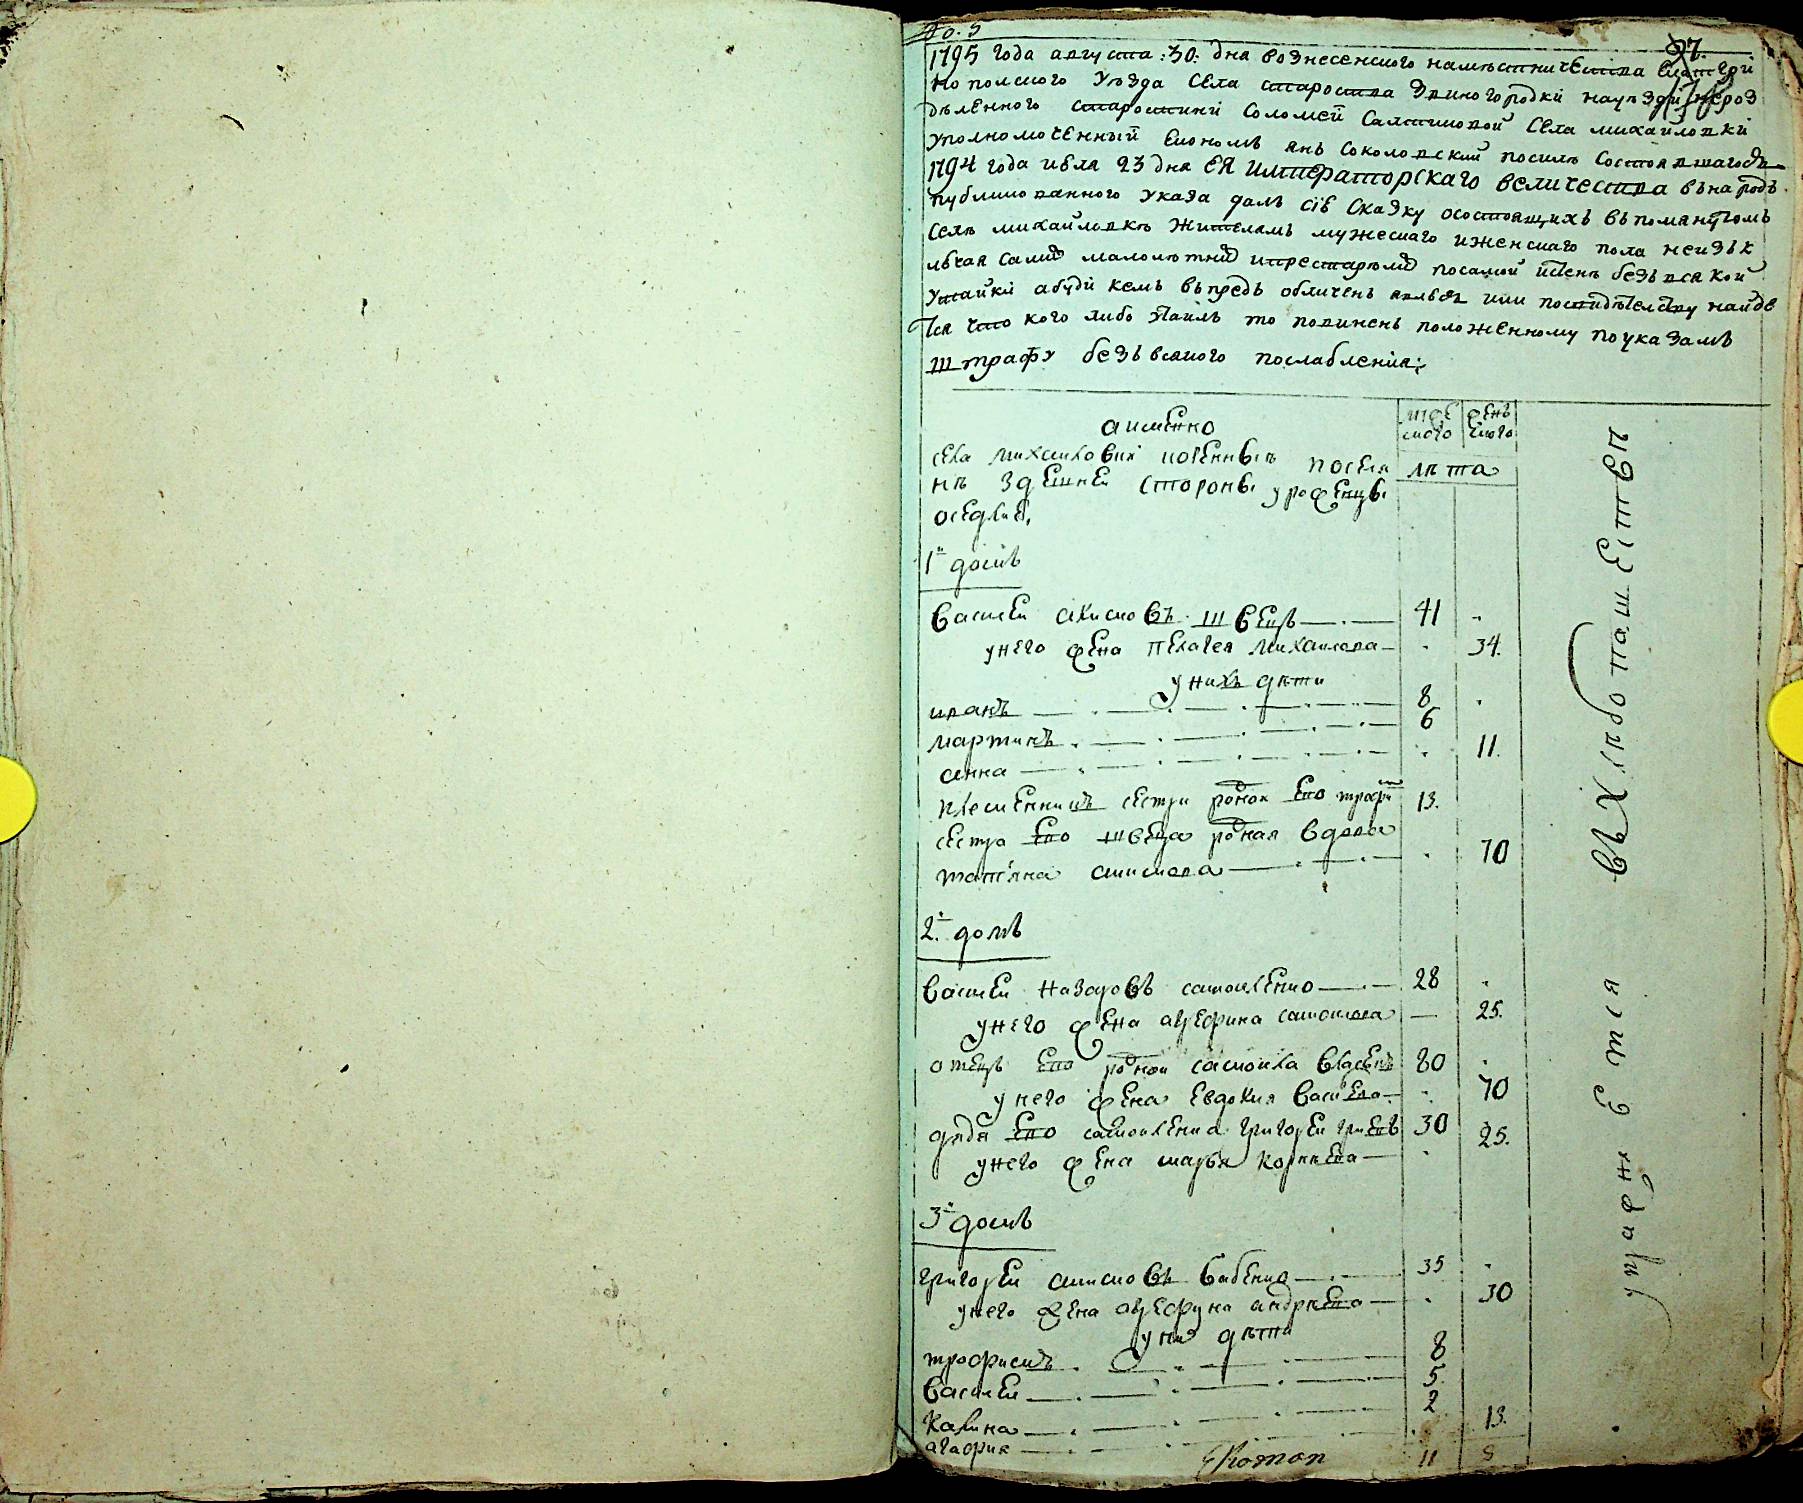 №. 5
27.
1795 года августа :30: дня вознесенского наместничества Екатери
нополского Уезда Села староства Звиногородки
деленного старостини Соломеи Салтиковой Села михайловки
уполномоченный Економъ янъ Соколовский посиле Состоявшагося
1794 года июля 23 дня ЕЯ Императорскаго величества внародъ
публикованного указа далъ сію Сказку осостоящихъ впомянутомъ
Селе михайловке жителямъ мужескаго иженскаго пола неизьк
лючая самих малолетних ипрестарелих посамой истене безъ всякой
утайки абуди кемъ впредь обличень явлюсь или посвидетелству найде
тся что кого либо утаилъ то повиненъ положенному поуказамъ
штрафу безъ всякого послабления:
аименно
муже ского
жень ского
села михаиловки
нъ здешнеи стороны уроженцы
оседлие,
лета
1й домъ
Василеи акимовъ швець 41
унего жена пелагея михаилова 34.
унихъ дети
иванъ 8
мартинъ 6
анна 11.
племенникъ сестри родной его трофим 13.
сестра его швеца родная вдова
татяна акимова 70
2й домъ
Василеи назаровъ самоиленко 28
унего жена афросина самоилова 25.
отецъ его родной самоила 80
унего жена евдокия васильева 70
дядя его самоиленка григореи 30
унего жена марья корнеева 25.
3й домъ
григореи акимовъ бабенко 35
унего жена андреева 30
уних дети
трофимъ 8
Василеи 5.
калина 2
агафия 13.
11 8
вхлебопашестве
упражняется